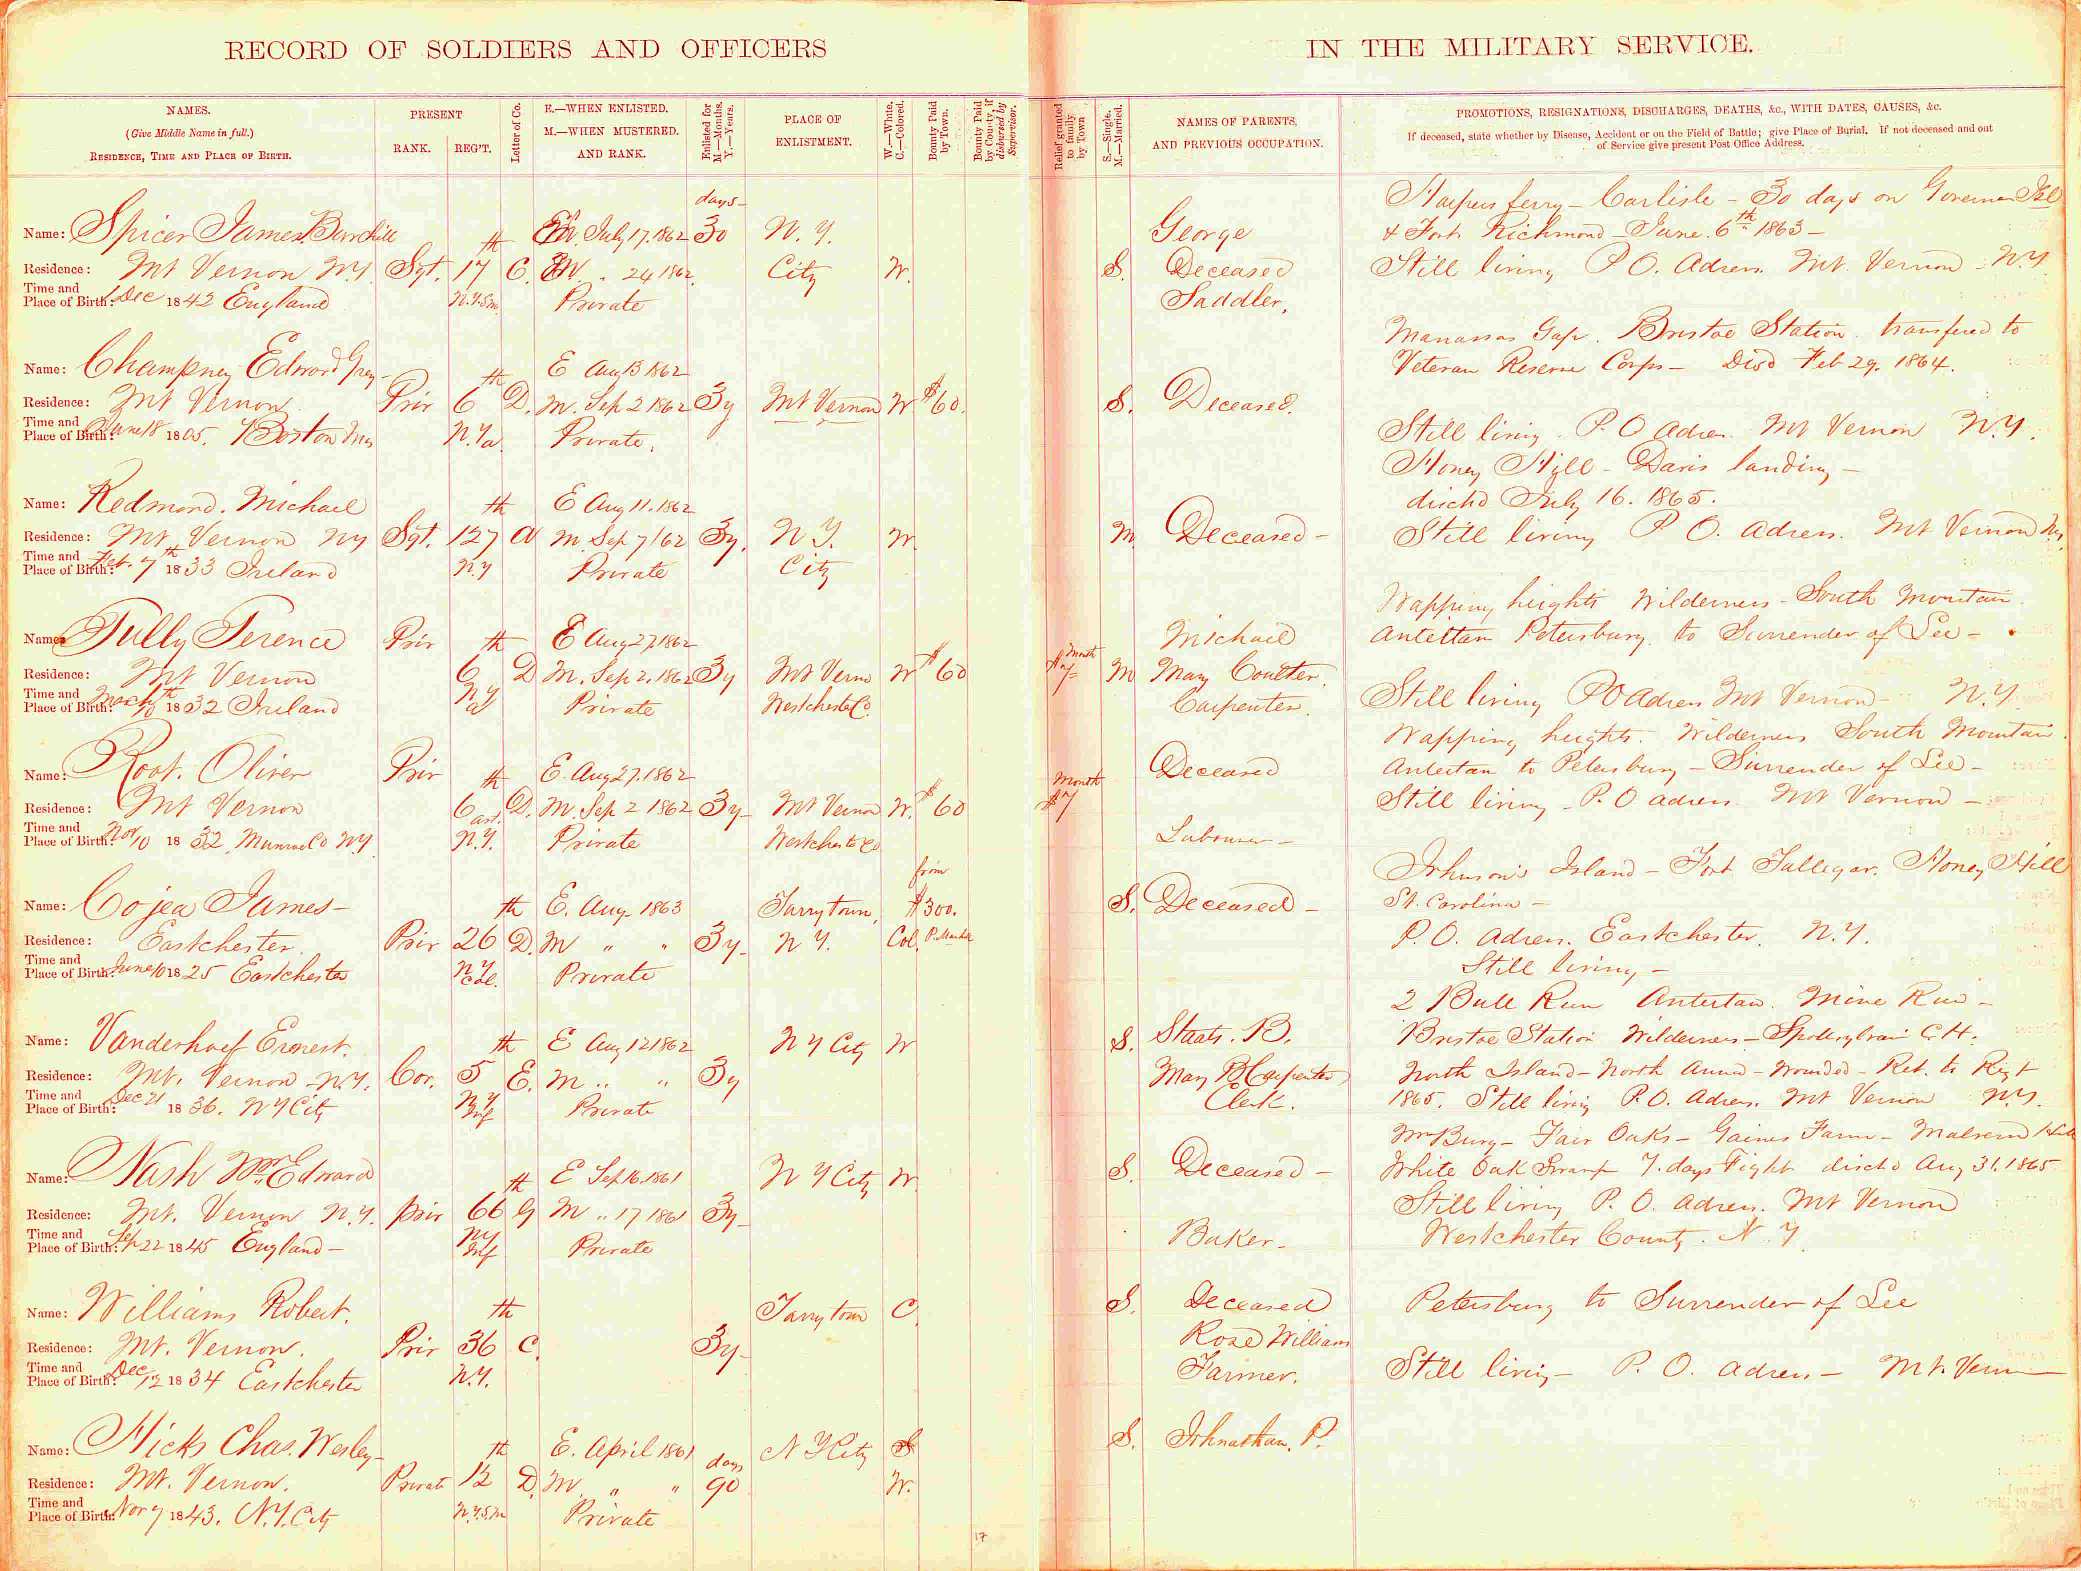 RECORD OF SOLDIERS AND OFFICERS IN THE MILITARY SERVICE.
NAMES.
(Give Middle Name in full.)
RESIDENCE, TIME AND PLACE OF BIRTH.
PRESENT
RANK. REG'T.
Letter of Co.
E.—WHEN ENLISTED.
M.—WHEN MUSTERED.
AND RANK.
Enlisted for
M.—Months.
Y.—Years.
PLACE OF
ENLISTMENT.
W.—White.
C.—Colored.
Bounty Paid
by Town.
Bounty Paid
by County, if
disbursed by
Supervisor.
Relief granted
to family
by Town
S.—Single.
M.—Married.
NAMES OF PARENTS,
AND PREVIOUS OCCUPATION.
PROMOTIONS, RESIGNATIONS, DISCHARGES, DEATHS, &c., WITH DATES, CAUSES, &c.
If deceased, state whether by Disease, Accident or on the Field of Battle; give Place of Burial. If not deceased and out
of Service give present Post Office Address.
days
Harpers ferry - Carlisle - 30 days on Governer Isl
Name: Spicer James th July 17. 1862 30 N. Y. George & Fort Richmond - June 6th 1863 -
Residence: Mt Vernon N.Y. Sgt. 17 C. " 24 1862 City W. S. Deceased Still living P O. Adress. Mt. Vernon N.Y.
Time and
Place of Birth: Dec 1842 England N.Y.S.M. Private Saddler.
Manassas Gap. Bristoe Station. transfered to
Name: Champney Edward Grey th E Aug 13 1862 Veteran Reserve Corps - Disd Feb 29. 1864.
Residence: Mt Vernon Priv 6 D. M. Sep 2 1862 3y Mt Vernon W $60. S. Deceased.
Time and
Place of Birth: June 18 1805. Boston Mas N.Y a Private. Still living. P. O Adres. Mt Vernon N.Y.
Honey Hyll - Davis landing -
Name: Redmond. Michael th E Aug 11. 1862 disch'd July 16. 1865.
Residence: Mt Vernon NY Sgt. 127 A M Sep 7/62 3y. N Y. W. M Deceased - Still living P O. Adress. Mt Vernon Ny.
Time and
Place of Birth: Feb. 7th 1833 Ireland N.Y Private City
Wapping heights Wilderness - South Mountain.
Name: Tully Terence Priv th E Aug 27, 1862 Michael Antettam Petersburg. to Surrender of Lee -
Residence: Mt Vernon 6 D M. Sep 2. 1862 3y Mt Verno W $60 $7 Month M Mary Coulter.
Time and
Place of Birth: March 10th 1832 Ireland N.Y a Private Westchester Co. Carpenter. Still living P O Adress Mt Vernon - N.Y.
Wapping heights. Wilderness South Mountain.
Name: Root. Oliver Priv th E. Aug 27. 1862 Month Deceased Antietam to Petersburg - Surrender of Lee -
Residence: Mt Vernon 6 art. D. M. Sep 2 1862 3y Mt Vernon W. $60 $7 Still living - P. O adress Mt Vernon -
Time and
Place of Birth: Nov 10 1832 Munroe Co NY N.Y. Private Westchester Co Labourer -
from Johnson's Island - Fort Honey Hill
Name: Cojea James - th E. Aug 1863 Tarrytown, $300. S. Deceased - St. Carolina -
Residence: Eastchester. Priv 26 D. M " " 3y N Y. Col. P. Marshal P. O. Adress. Eastchester. N.Y.
Time and
Place of Birth: June 10 1825 Eastchester N Y Col. Private Still living -
2 Bull Run Antietam. Mine Run -
Name: Vanderhoef Ernest. th E Aug 12 1862 N Y City W S. Staats. B. Bristoe Station Wilderness - Spottsylvania C.H.
Residence: Mt. Vernon - N.Y. Cor. 5 E. M " " 3y Mary B Carpenter North Island - North Anna - Wounded - Ret. to Regt
Time and
Place of Birth: Dec 21 1836. N Y City N Y Inf Private Clerk. 1865. Still living P.O. Adress. Mt Vernon N.Y.
WmBurg - Fair Oaks - Gaines Farm - Malvern Hill
Name: Nash Wm Edward th E Sep 16. 1861 N Y City W. S. Deceased - White Oak Swamp 7. days Fight disch'd Aug 31. 1865
Residence: Mt. Vernon N.Y. priv 66 G M " 17 1861 3y Still living P. O. Adress. Mt Vernon
Time and
Place of Birth: Sep 22 1845 England - N.Y Inf Private Baker - Westchester County. N. Y.
Name: Williams Robert. th Tarrytown C. S. Deceased Petersburg to Surrender of Lee
Residence: Mt. Vernon. Priv 36 C. 3y Rose William
Time and
Place of Birth: Dec 12 1834 Eastchester N.Y. Farmer. Still living - P. O. Adress - Mt. Vern
Name: Hicks Chas. Wesley - th E. April 1861 days N Y City S. Johnathan. P.
Residence: Mt. Vernon. Private 12 D. M " " 90 W.
Time and
Place of Birth: Nov 7 1843. N.Y. City N.Y.S.M Private
17